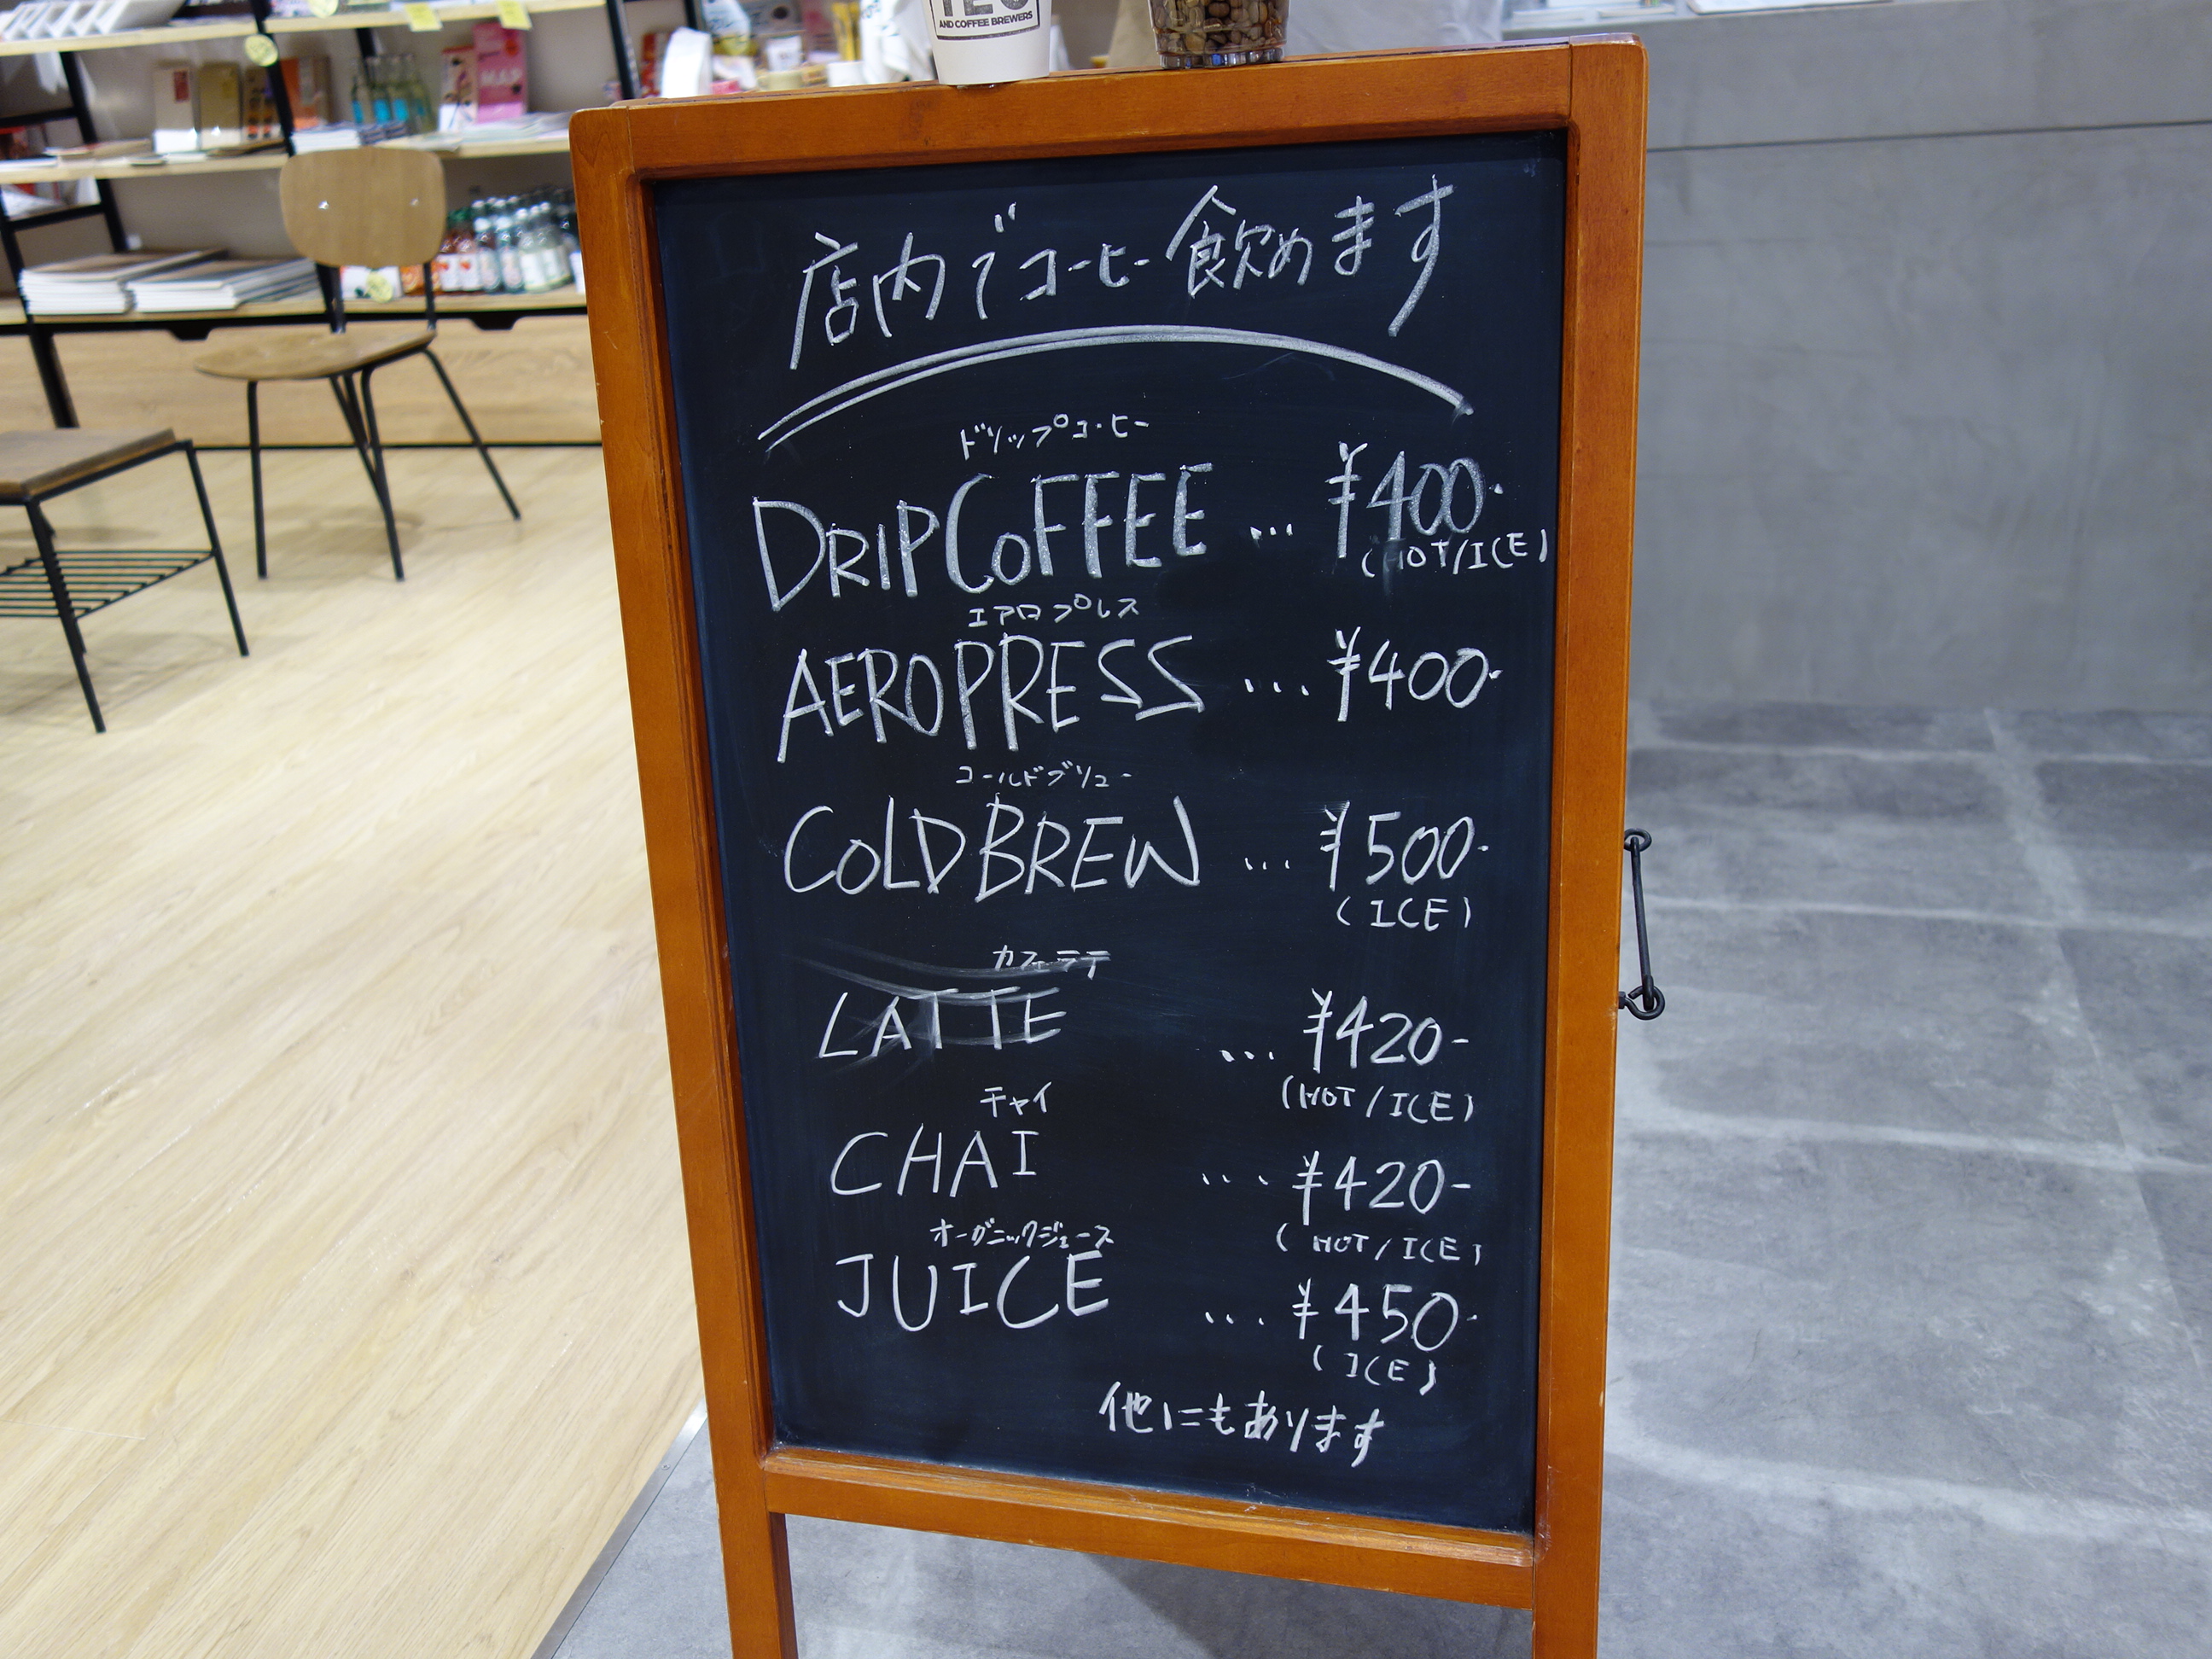 AND COFFEE BREWERS
MAP
店内でコーヒー飲めます
ドリップコーヒー
DRIP COFFEE ... ¥400.
(HOT/ICE)
エアロプレス
AEROPRESS ... ¥400.
コールドブリュー
COLD BREW ... ¥500.
(ICE)
カフェラテ
LATTE ... ¥420-
(HOT/ICE)
チャイ
CHAI ... ¥420-
(HOT/ICE)
オーガニックジュース
JUICE ... ¥450.
(ICE)
他にもあります